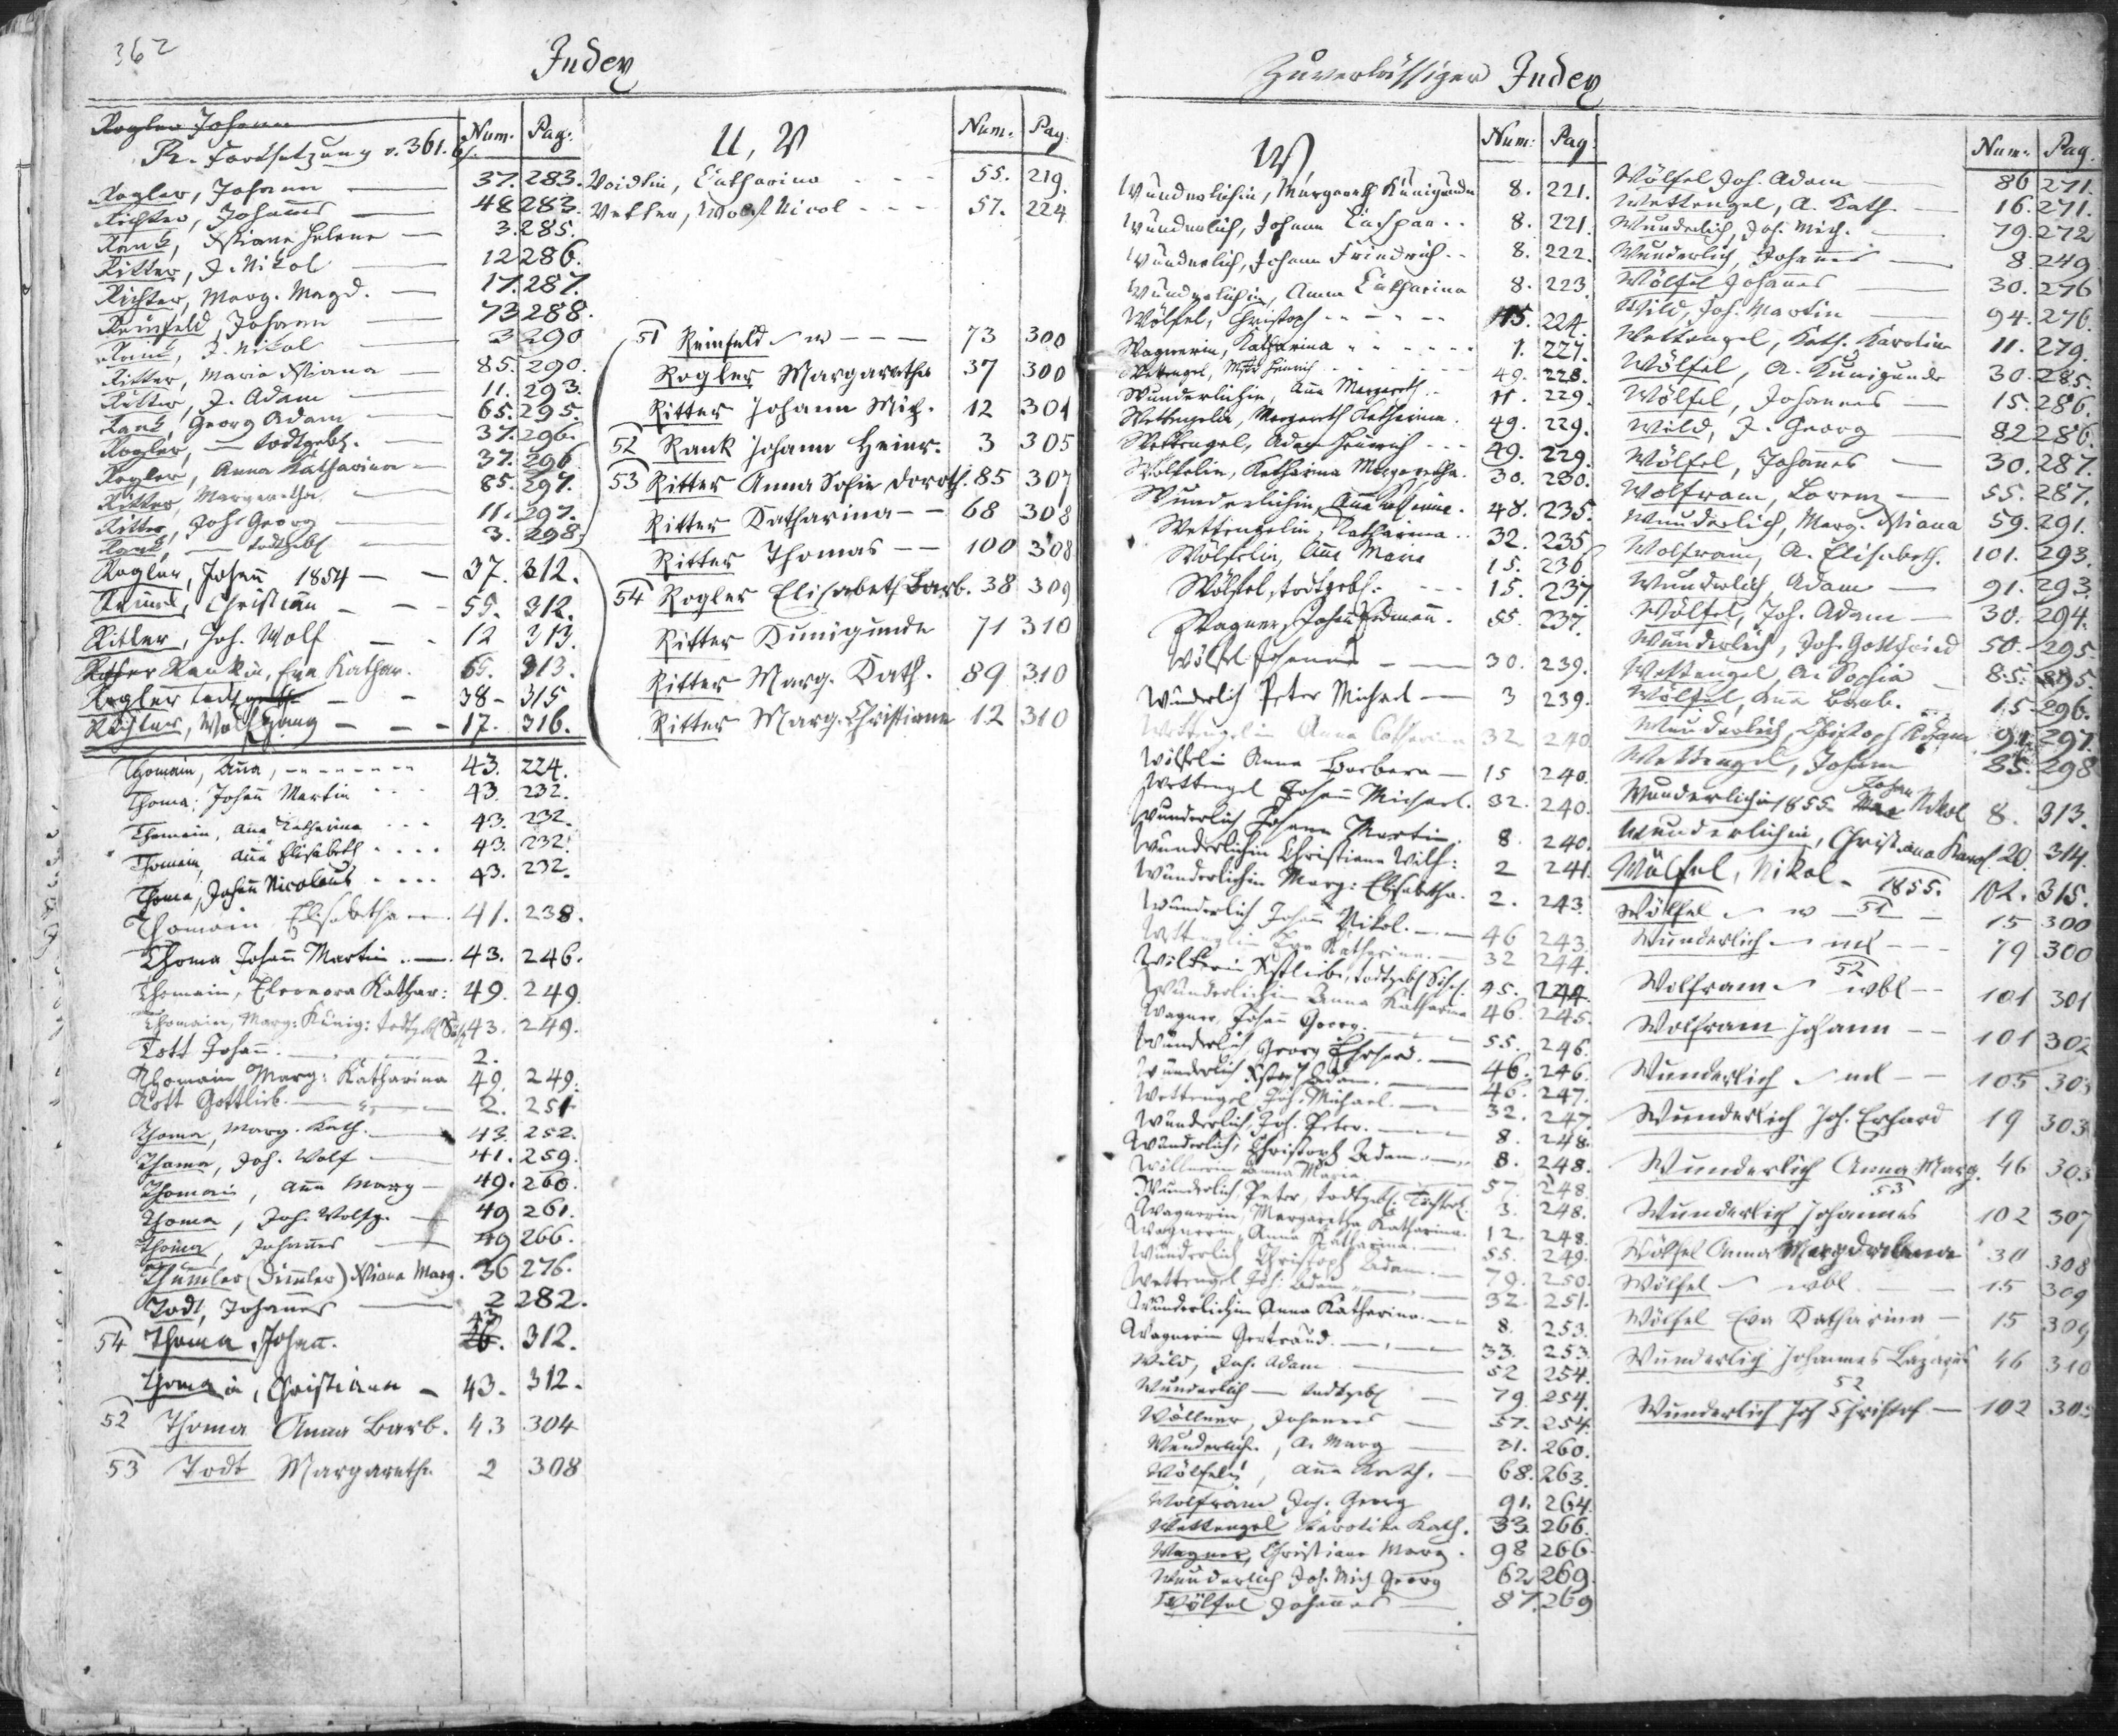 362
Index
Rogler Johann
R. Fortsetzung v. 361. bf.
Num. Pag:
Rogler, Johann — 37. 283.
Richter, Johannes — 48 283.
Rank, Xstiana Helena — 3. 285.
Ritter, J. Nikol — 12 286.
Richter, Marg. Magd. — 17. 287.
Reinfeld, Johann — 73 288.
Rank, J. Nikol — 3 290
Ritter, Maria Xstiana — 85. 290.
Ritter, J. Adam — 11. 293.
Rank, Georg Adam — 65. 295.
Rogler, — todtgeb. — 37. 296.
Rogler, Anna Katharina — 37. 296.
Ritter, Margaretha — 85. 297.
Ritter, Joh. Georg — 11. 297.
Rank, — todtgeb — 3. 298.
Rogler, Johann 1854 — — 37. 312.
Christian — — 55. 312.
Ritter, Joh. Wolf — - 12 313.
Rankin, Eva Kathar. 65. 313.
Rogler todtgeb — - 38 - 315
Richter, Wolfgang — — - 17. 316.
Thomain, Anna, - - - - 43. 224.
Thoma, Johann Martin - - - 43. 232.
Thomain, Anna Katharina - - - 43. 232.
Thomain, Anna Elisabeth - - - - 43. 232.
Thoma, Johann Nicolaus - - - - 43. 232.
Thomain Elisabetha 41. 238.
Thoma Johann Martin — 43. 246.
Thomain, Eleonora Kathar: 49. 249.
Thomain, Marg: Kunig: todtgeb 43. 249.
Tott Johann. — 2.
Thomain Marg: Katharina 49. 249.
Tott Gottlieb. — 2. 251
Thoma, Marg. Kath. — 43. 252.
Thoma, Joh. Wolf — 41. 259.
Thomain, Anna Marg — 49. 260.
Thoma, Joh. Wolfg. — 49 261.
Thoma, Johannes — 49 266.
Thümler (Dimler) Xstiana Marg. 36 276.
Todt, Johannes — 2 282.
54 Thoma Johann. 43 26. 312.
Thomain, Christiana — 43. 312.
52 Thoma Anna Barb. 43 304
53 Todt Margaretha 2 308
U, V
Num. Pag.
Voidtin, Catharina - - - 55. 219.
Vetter, Wolf Nicol - - - 57. 224
51 Reinfeld w - - - 73 300
Rogler Margaretha 37 300
Ritter Johann Mich. 12 301
52 Rank Johann Heinr. 3 305
53 Ritter Anna Sofie Doroth. 85 307
Ritter Katharina - - 68 308
Ritter Thomas - - 100 308
54 Rogler Elisabeth Barb. 38 309
Ritter Kunigunde 71 310
Ritter Marg. Kath. 89 310
Ritter Marg. Christiane 12 310
Zuverlässiger Index
W
Num: Pag:
Wunderlichin, Margareth Kunigunda 8. 221.
Wunderlich, Johann Caspar - - 8. 221.
Wunderlich, Johann Friedrich - - 8. 222.
Wunderlichin, Anna Catharina 8. 223.
Wölfel, Christoph - - - - 15. 224.
Wagnerin, Katharina - - - - 1. 227.
Wettengel, Heinrich - - - 49. 228.
Wunderlichin, Anna Margareth - - 11. 229.
Wettengelin, Margareth Katharina. 49. 229.
Wettengel, Adam Heinrich - - - 49. 229.
Wölfelin, Katharina Margaretha. 30. 230.
Wunderlichin, Anna Katharina. 48. 235.
Wettengelin, Katharina - - 32. 235.
Wölfelin, Anna Maria 15. 236.
Wölfel, todtgeb: - - - 15. 237
Wagner, Johann Erdmann. 55. 237.
Wölfel Johannes - — 30. 239.
Wunderlich Peter Michael — 3 239.
Wettengelin Anna Catharina 32 240
Wölfelin Anna Barbara — 15 240.
Wettengel Johann Michael. 32. 240.
Wunderlich Johann Martin. 8 240.
Wunderlichin Christiana Wilh: 2 241.
Wunderlichin Marg: Elisabetha. 2. 243.
Wunderlich Johann Nikol. — 46 243.
Wettengelin Eva Katharina. — 32 244.
todtgeb 45. 244.
Wunderlichin Anna Katharina 46. 245.
Wagner, Johann Georg. — 55. 246.
Wunderlich Georg Erhard. — 46. 246.
Wunderlich Xstoph Adam. — 46. 247.
Wettengel Joh. Michael. — 32. 247.
Wunderlich, Joh. Peter. — 8. 248.
Wunderlich, Christoph Adam. — 8. 248.
Wöllnerin Anna Maria 57. 248.
Wunderlich, Peter, todtgeb. 3. 248.
Wagnerin, Margaretha Katharina. 12. 248.
Wagnerin, Anna Katharina. — 55. 249.
Wunderlich Christoph Adam. — 79. 250.
Wettengel Joh. Adam — 32. 251.
Wunderlichin Anna Katharina. — 8. 253.
Wagnerin Gertraud. — 33. 253.
Wild, Joh. Adam — 52 254.
Wunderlich — todtgeb — 79 254.
Wöllner, Johannes — 57. 254.
Wunderlich, A. Marg — 31. 260.
Wölfelin, Anna Kath. — 68. 263.
Wolfram Joh. Georg 91. 264.
Wettengel Karolina Kath. 33. 266.
Wagner, Christiana Marg. 98 266.
Wunderlich Joh. Nich Georg 62. 269.
Wölfel Johannes — 87. 269
Num. Pag.
Wölfel Joh. Adam — 86 271.
Wettengel, A. Kath. — 16. 271.
Wunderlich, Joh. Mich. — 79. 272
Wunderlich, Johannes — 8 249
Wölfel Johannes — 30. 276
Wild, Joh. Martin 94. 276.
Wettengel, Kath. Karolina 11. 279.
Wölfel, A. Kunigunde 30. 285.
Wölfel, Johannes — 15. 286.
Wild, J. Georg — 82 286.
Wölfel, Johannes — 30. 287.
Wolfram, Lorenz — 55. 287.
Wunderlich, Marg. Xstiana 59. 291.
Wolfram, A. Elisabeth. 101. 293.
Wunderlich, Adam — 91. 293.
Wölfel, Joh. Adam — 30. 294.
Wunderlich, Joh. Gottfried 50. 295.
Wettengel, A. Sophia — 85. 295.
Wölfel, Anna Barb. - 15. 296.
Wunderlich, Christoph Adam 91. 297.
Wettengel, Johann 85. 298
Wunderlichin 1855 Johan Nikol 8. 313.
Wunderlichin, Christiana Karol 20. 314.
Wölfel, Nikol - 1855. 102. 315.
Wölfel w 51 15 300
Wunderlich ml - - - 79 300
52
Wolfram wbl - - 101 301
Wolfram Johann - - 101 302
Wunderlich ml - - 105 303
Wunderlich Joh. Erhard 19 303
Wunderlich Anna Marg. 46 303
53
Wunderlich Johannes 102 307
Wölfel Anna Magdalena 30 308
Wölfel wbl — 15 309
Wölfel Eva Katharina — 15 309
Wunderlich Johannes Lazarus 46 310
52
Wunderlich Joh Christof — 102 305